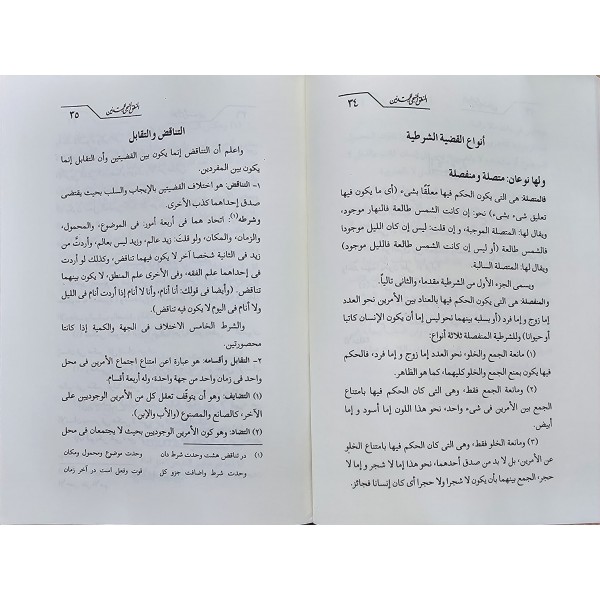 ٣٤
أنواع القضية الشرطية
ولها نوعان: متصلة ومنفصلة
فالمتصلة هى التى يكون الحكم فيها معلّقًا بشىء (أى ما يكون
تعليق شىء بشىء) نحو: إن كانت الشمس طالعة فالنهار موجود،
ويقال لها: المتصلة الموجبة، و إن قلت: ليس إن كان الليل موجودا
فالشمس طالعة (أو ليس إن كانت الشمس طالعة فالليل موجود)
ويقال لها: المتصلة السالبة.
يسمى الجزء الأول من الشرطية مقدما، والثانى تالياً.
والمنفصلة: هى التى يكون الحكم فيها بالعناد بين الأمرين نحو العدد
إما زوج و إما فرد (أو بسلبه بينهما نحو ليس إما أن يكون الإنسان كاتبا
أو حيوانا) وللشرطية المنفصلة ثلاثة أنواع:
(١) مانعة الجمع والخلو، نحو العدد إما زوج و إما فرد، فالحكم
فيها يكون بمنع الجمع والخلو كليهما، كما هو الظاهر.
(٢) ومانعة الجمع فقط، وهى التى كان الحكم فيها بامتناع
الجمع بين الأمرين فى شىء واحد، نحو هذا اللون إما أسود و إما
أبيض.
(٣) ومانعة الخلو فقط، وهى التى كان الحكم فيها بامتناع الخلو
عن الأمرين، بل لا بد من صدق أحدهما، نحو هذا إما لا شجر و إما لا
حجر، الجمع بينهما بأن يكون لا شجرا ولا حجرا أى كان إنسانا فجائز.
٣٥
التناقض والتقابل
واعلم أن التناقض إنما يكون بين القضيتين وأن التقابل إنما
يكون بين المفردين.
١- التناقض: هو اختلاف القضيتين بالإيجاب والسلب بحيث يقتضى
صدق إحداهما كذب الأخرى.
وشرطه(١): اتحاد هما فى أربعة أمور: فى الموضوع، والمحمول،
والزمان، والمكان، ولو قلتَ: زيد عالم، وزيد ليس بعالم، وأردتَّ من
زيد فى الثانية شخصا آخر لا يكون فيهما تناقض، وكذلك لو أردت
فى إحداهما علم الفقه، وفى الأخرى علم المنطق، لا يكون بينهما
تناقض. (وأيضا فى قولك: أنام، وأنا لا أنام إذا أردت أنام فى الليل
ولا أنام فى اليوم لا يكون فيه تناقض).
والشرط الخامس الاختلاف فى الجهة والكمية إذا كانتا
محصورتين.
٢- التقابل وأقسامه: هو عبارة عن امتناع اجتماع الأمرين فى محل
واحد فى زمان واحد من جهة واحدة، وله أربعة أقسام.
(١) التضايف: وهو أن يتوقّف تعقل كل من الأمرين الوجوديين على
الآخر، كالصانع والمصنوع (والأب والإبن).
(٢) التضاد: وهو كون الأمرين الوجوديين بحيث لا يجتمعان فى محل
(١) در تناقض هشت وحدت شرط دان وحدت موضوع ومحمول ومكان
وحدت شرط واضافت جزو كل قوت وفعل است در آخر زمان